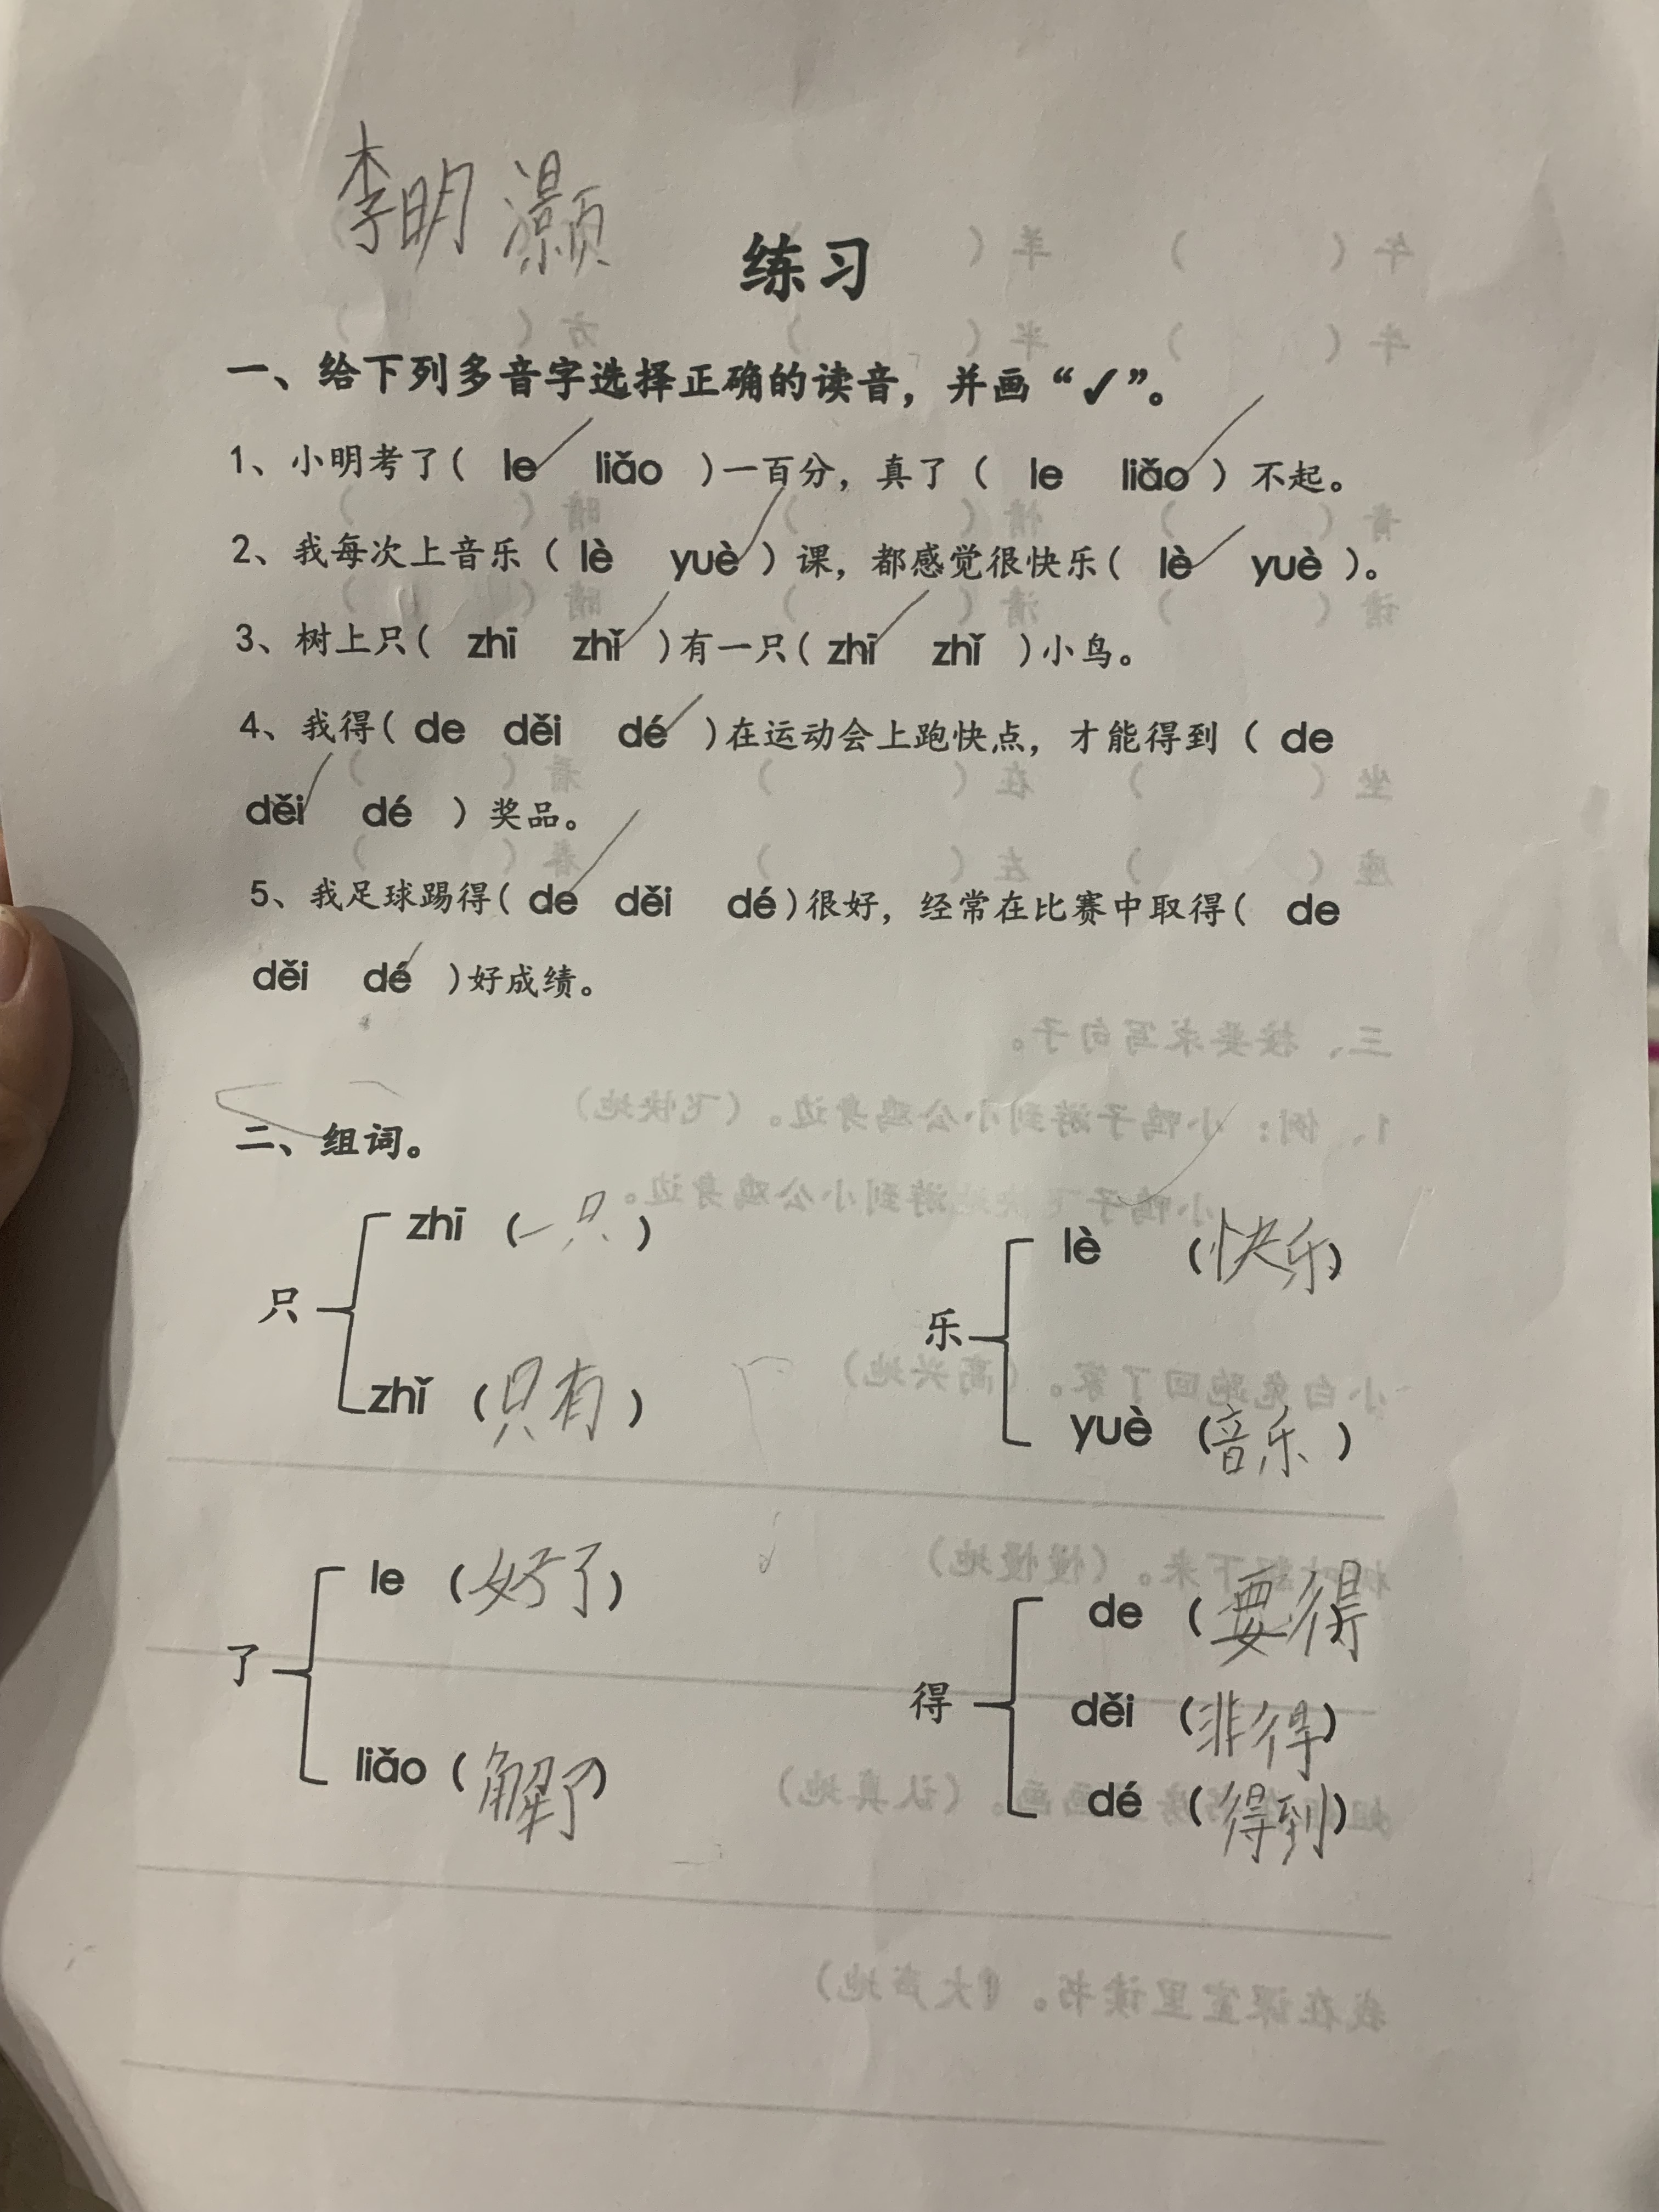 李明灏
练习
一、给下列多音字选择正确的读音，并画“✓”。
1、小明考了( le✓ liǎo )一百分，真了（ le liǎo✓ ）不起。
2、我每次上音乐（ lè yuè✓ ）课，都感觉很快乐( lè✓ yuè )。
3、树上只( zhī zhǐ✓ )有一只( zhī✓ zhǐ )小鸟。
4、我得( de děi dé✓ )在运动会上跑快点，才能得到（ de
děi✓ dé ）奖品。
5、我足球踢得( de✓ děi dé )很好，经常在比赛中取得( de
děi dé✓ )好成绩。
二、组词。
只
zhī (一只)
zhǐ (只有)
乐
lè (快乐)
yuè (音乐)
了
le (好了)
liǎo (解了)
得
de (要得
děi (非得)
dé (得到)